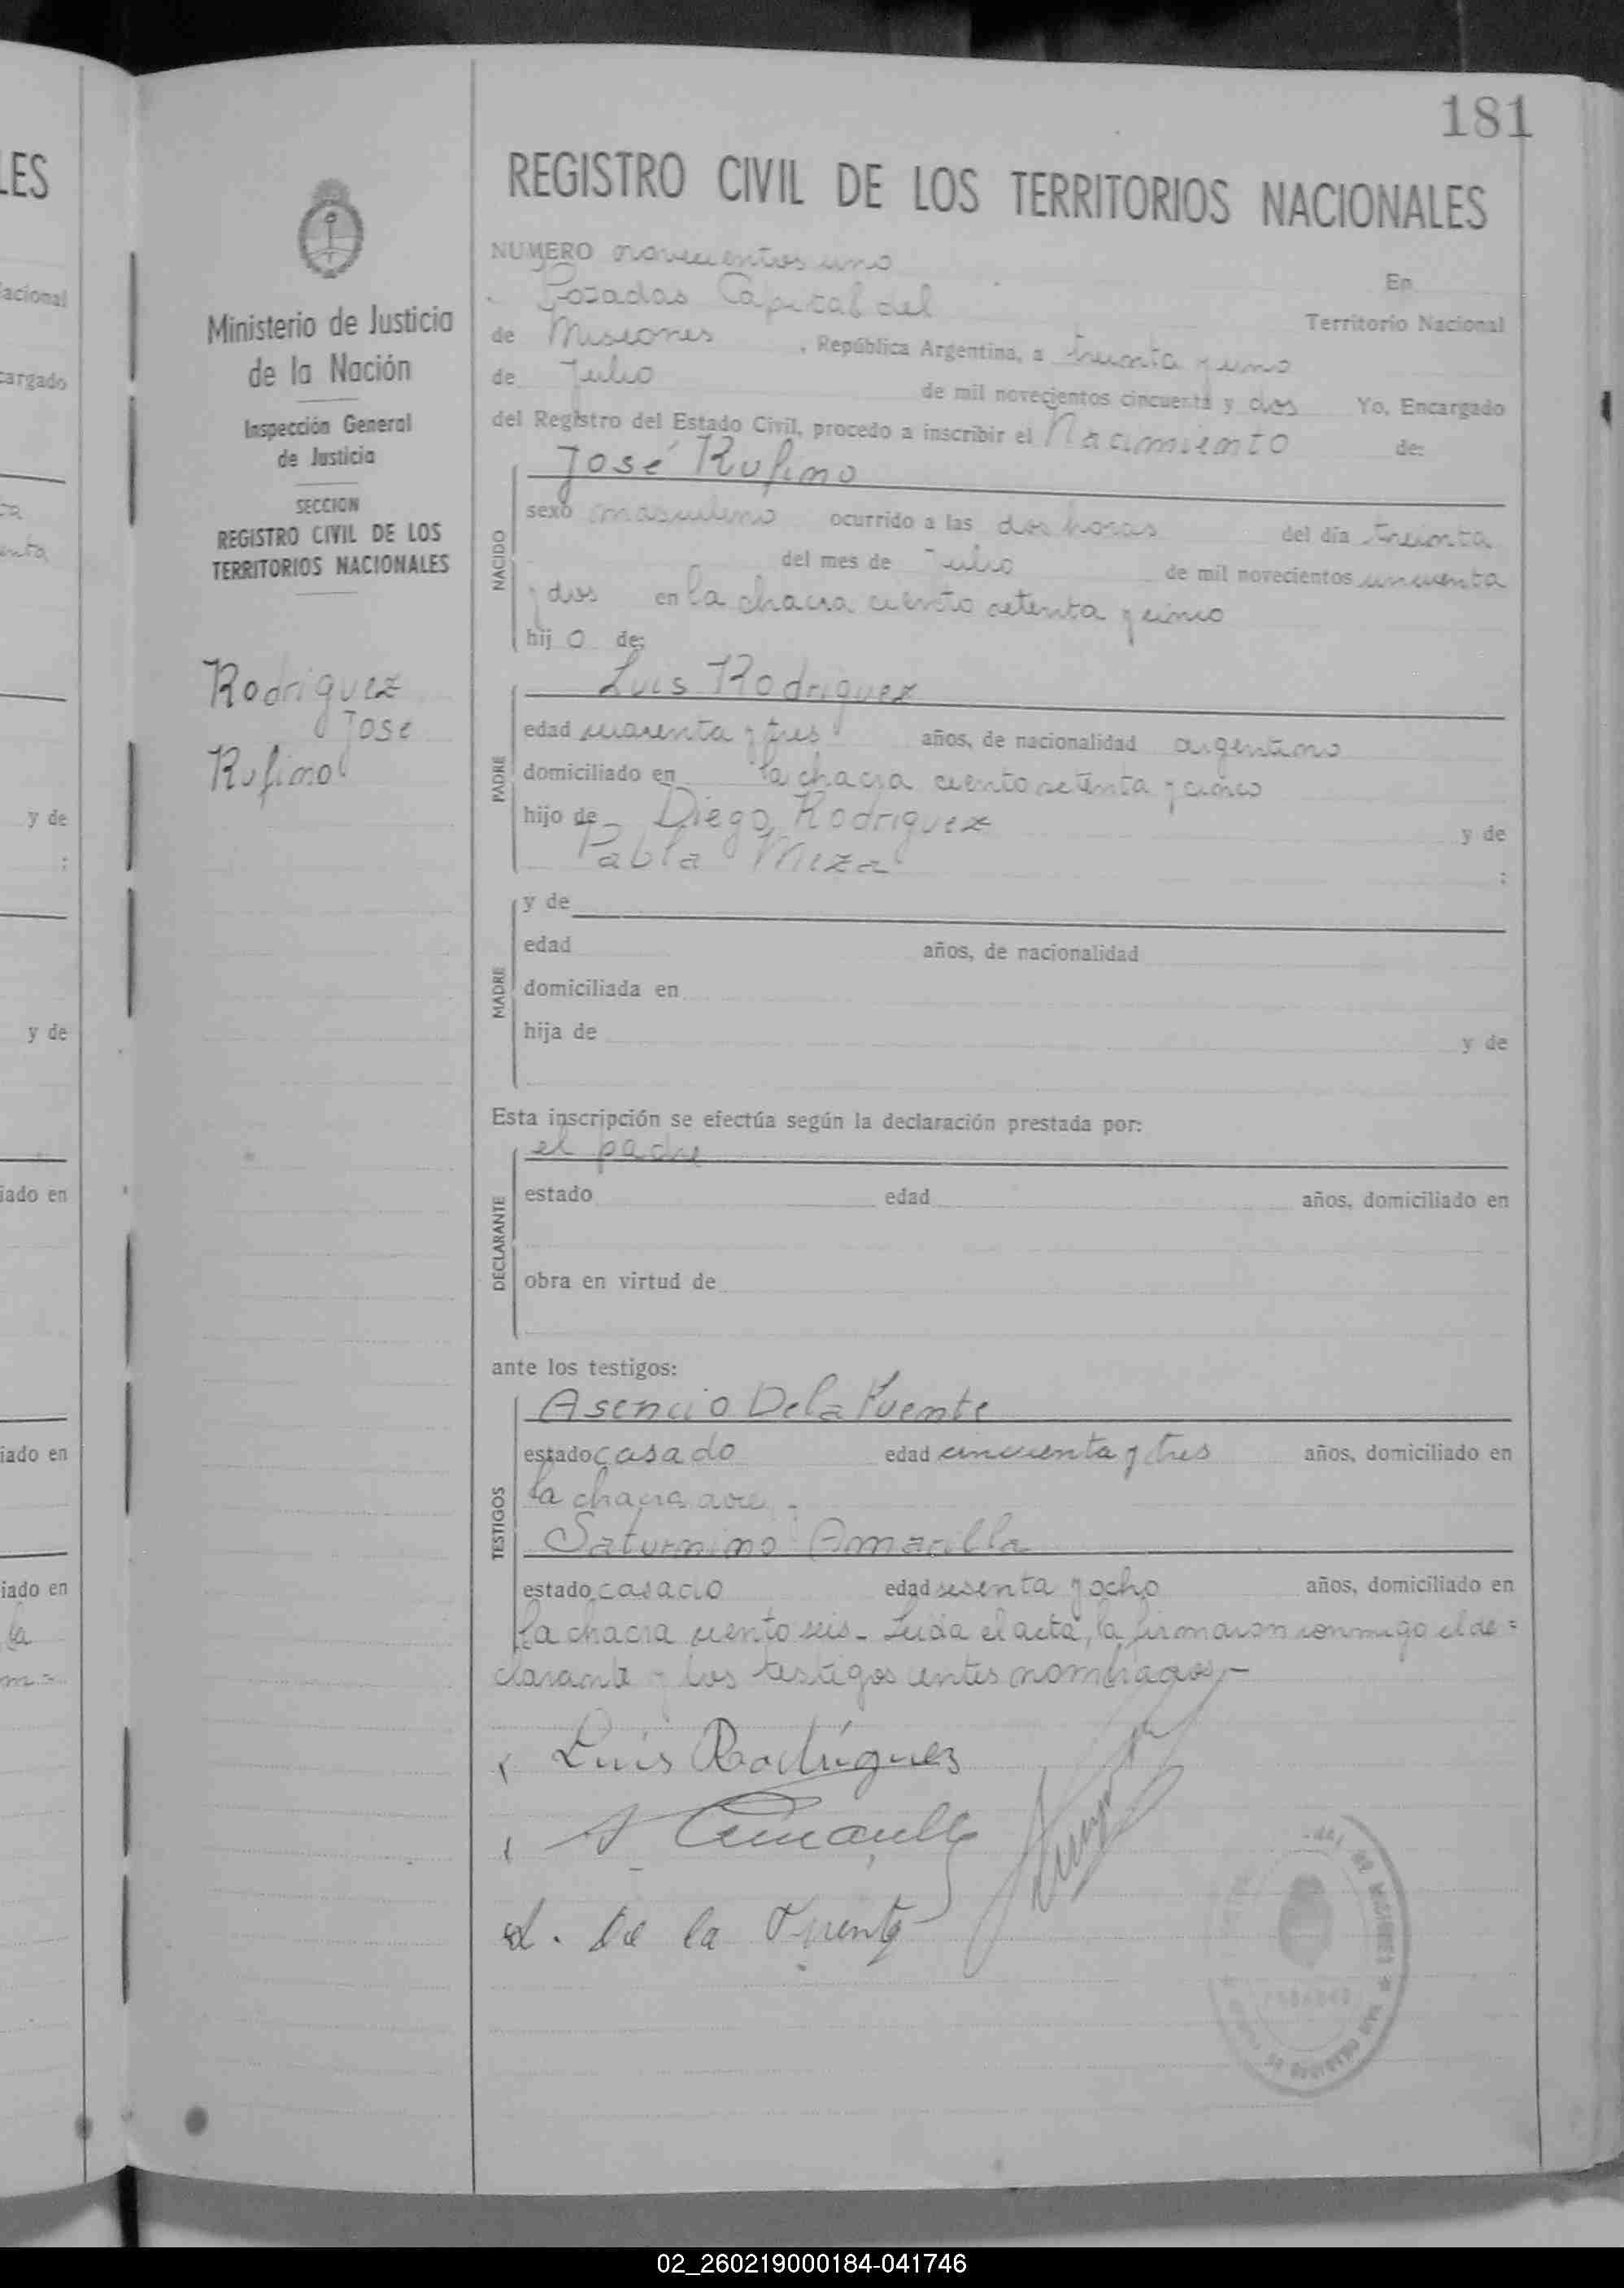 181
LES
REGISTRO CIVIL DE LOS TERRITORIOS NACIONALES
NUMERO novecientos uno
En
Posadas Capital del
Territorio Nacional
de Misiones, República Argentina, a treinta y uno
de Julio de mil novecientos cincuenta y dos Yo, Encargado
del Registro del Estado Civil, procedo a inscribir el Nacimiento de:
Ministerio de Justicia
de la Nación
Inspección General
de Justicia
SECCION
REGISTRO CIVIL DE LOS
TERRITORIOS NACIONALES
Rodriguez
José
Rufino
NACIDO
José Rufino
sexo masculino ocurrido a las dos horas del día treinta
del mes de Julio de mil novecientos cincuenta
y dos en la chacra ciento setenta y cinco
hijo de:
PADRE
Luis Rodriguez
edad cuarenta y tres años, de nacionalidad argentino
domiciliado en la chacra ciento setenta y cinco
hijo de Diego Rodriguez y de
Pabla Meza :
MADRE
y de
edad años, de nacionalidad
domiciliada en
hija de y de
Esta inscripción se efectúa según la declaración prestada por:
DECLARANTE
el padre
estado edad años, domiciliado en
obra en virtud de
ante los testigos:
TESTIGOS
Asencio De la Fuente
estado casado edad cincuenta y tres años, domiciliado en
la chacra doce.-
Saturnino Amarilla
estado casado edad sesenta y ocho años, domiciliado en
la chacra ciento seis.- Leída el acta, la firmaron conmigo el de=
clarante y los testigos antes nombrados.-
Luis Rodríguez
S. Amarilla
A. De la Fuente
02_260219000184-041746